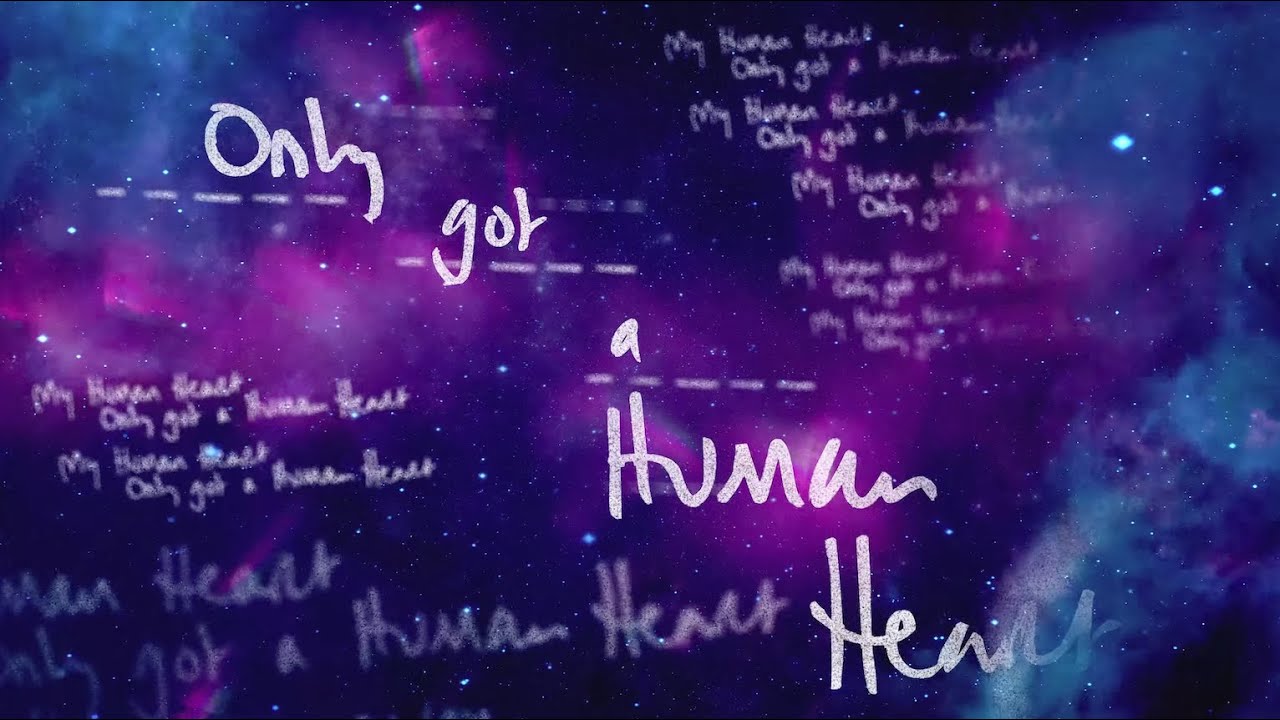 Only
got
a
Human
Heart
My Human Heart
Only got a Human Heart
My Human Heart
Only got a Human Heart
My Human Heart
Only got a Human
My Human Heart
Only got a Human
My Human Heart
Only got a
My Human Heart
Only got a Human Heart
My Human Heart
Only got a Human Heart
man Heart
nly got a Human Heart